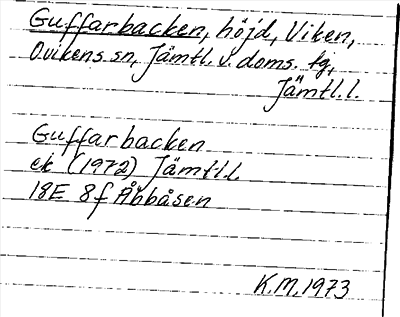 Guffarbacken, höjd, Viken,
Ovikens sn, Jämtl. v. doms. tg,
Jämtl.l.
Guffarbacken
ek (1972) Jämtl.l.
18E 8f Åbbåsen
K.M. 1973